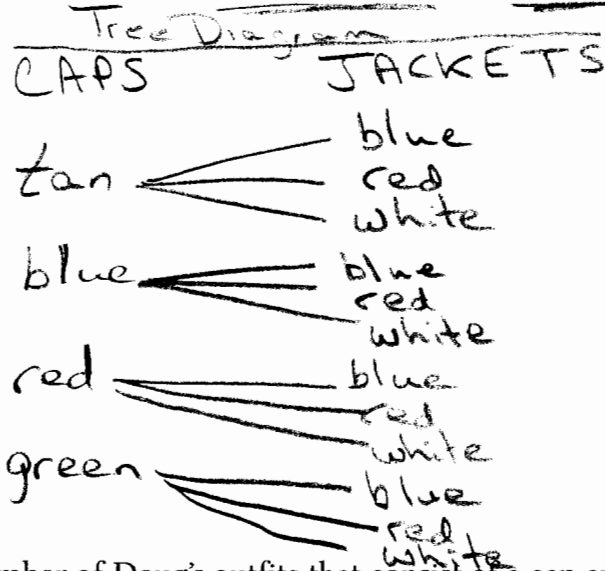 Tree Diagram
CAPS JACKETS
tan blue
red
white
blue blue
red
white
red blue
red
white
green blue
red
white
of Doug's outfits that